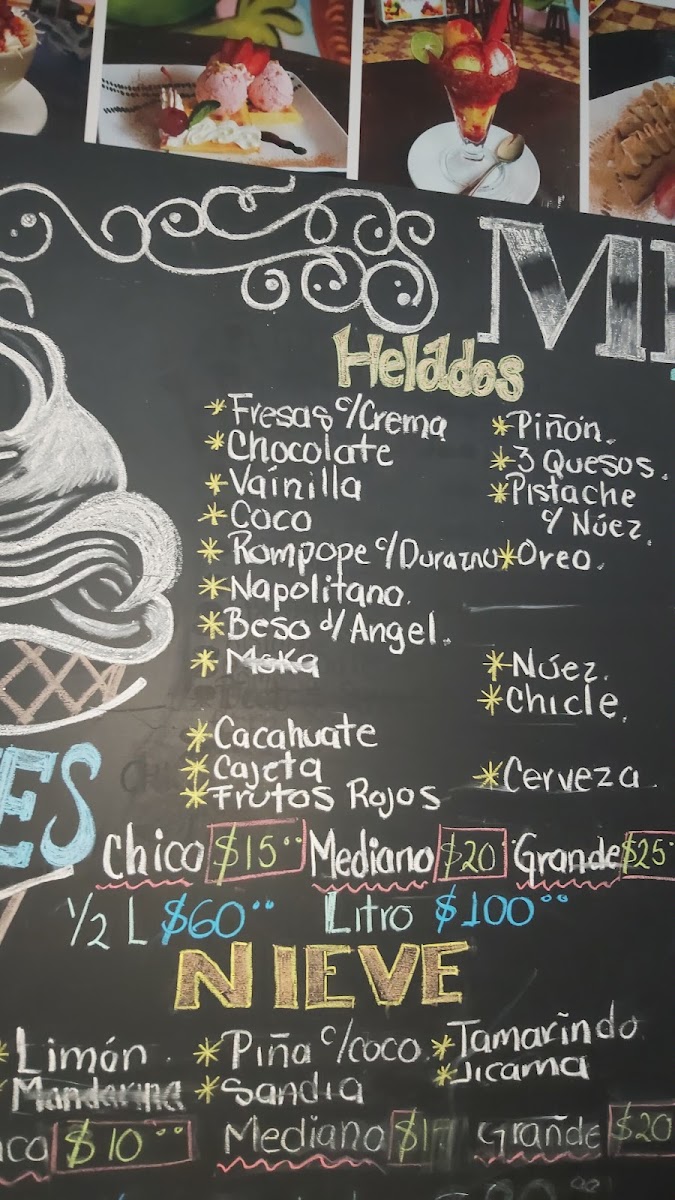 Helados
*Fresas c/Crema
*Chocolate
*Vaínilla
*Coco
*Rompope c/Durazno
*Napolitano.
*Beso d/Angel.
*Moka
*Cacahuate
*Cajeta
*Frutos Rojos
*Piñón.
*3 Quesos.
*Pistache
c/ Núez.
*Oreo.
*Núez.
*Chicle.
*Cerveza
Chico $15°° Mediano $20°° Grande $25
1/2 L $60°° Litro $100°°
NIEVE
*Limón *Piña c/coco *Tamarindo
*Mandarina *Sandia *Jicama
$10°° Mediano Grañde $20